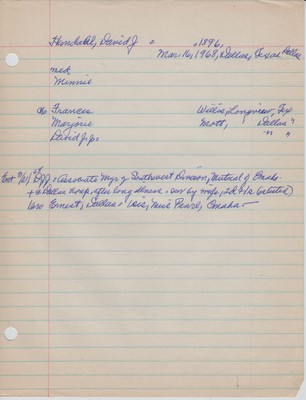 Honchahl, David J. 1896,
Mar. 16, 1968, Dallas, Texas Dallas
med.
Minnie
Ch Frances Willis, Longview, Tex
Marjorie Mott, Dallas "
David J. Jr. " "
DJ Associate Mgr of Southwest Division, Mutual of Omaha
Dallas Hosp. after long illness - sur by wife,
bro Ernest, Dallas - sis, Miss Pearl, Omaha -